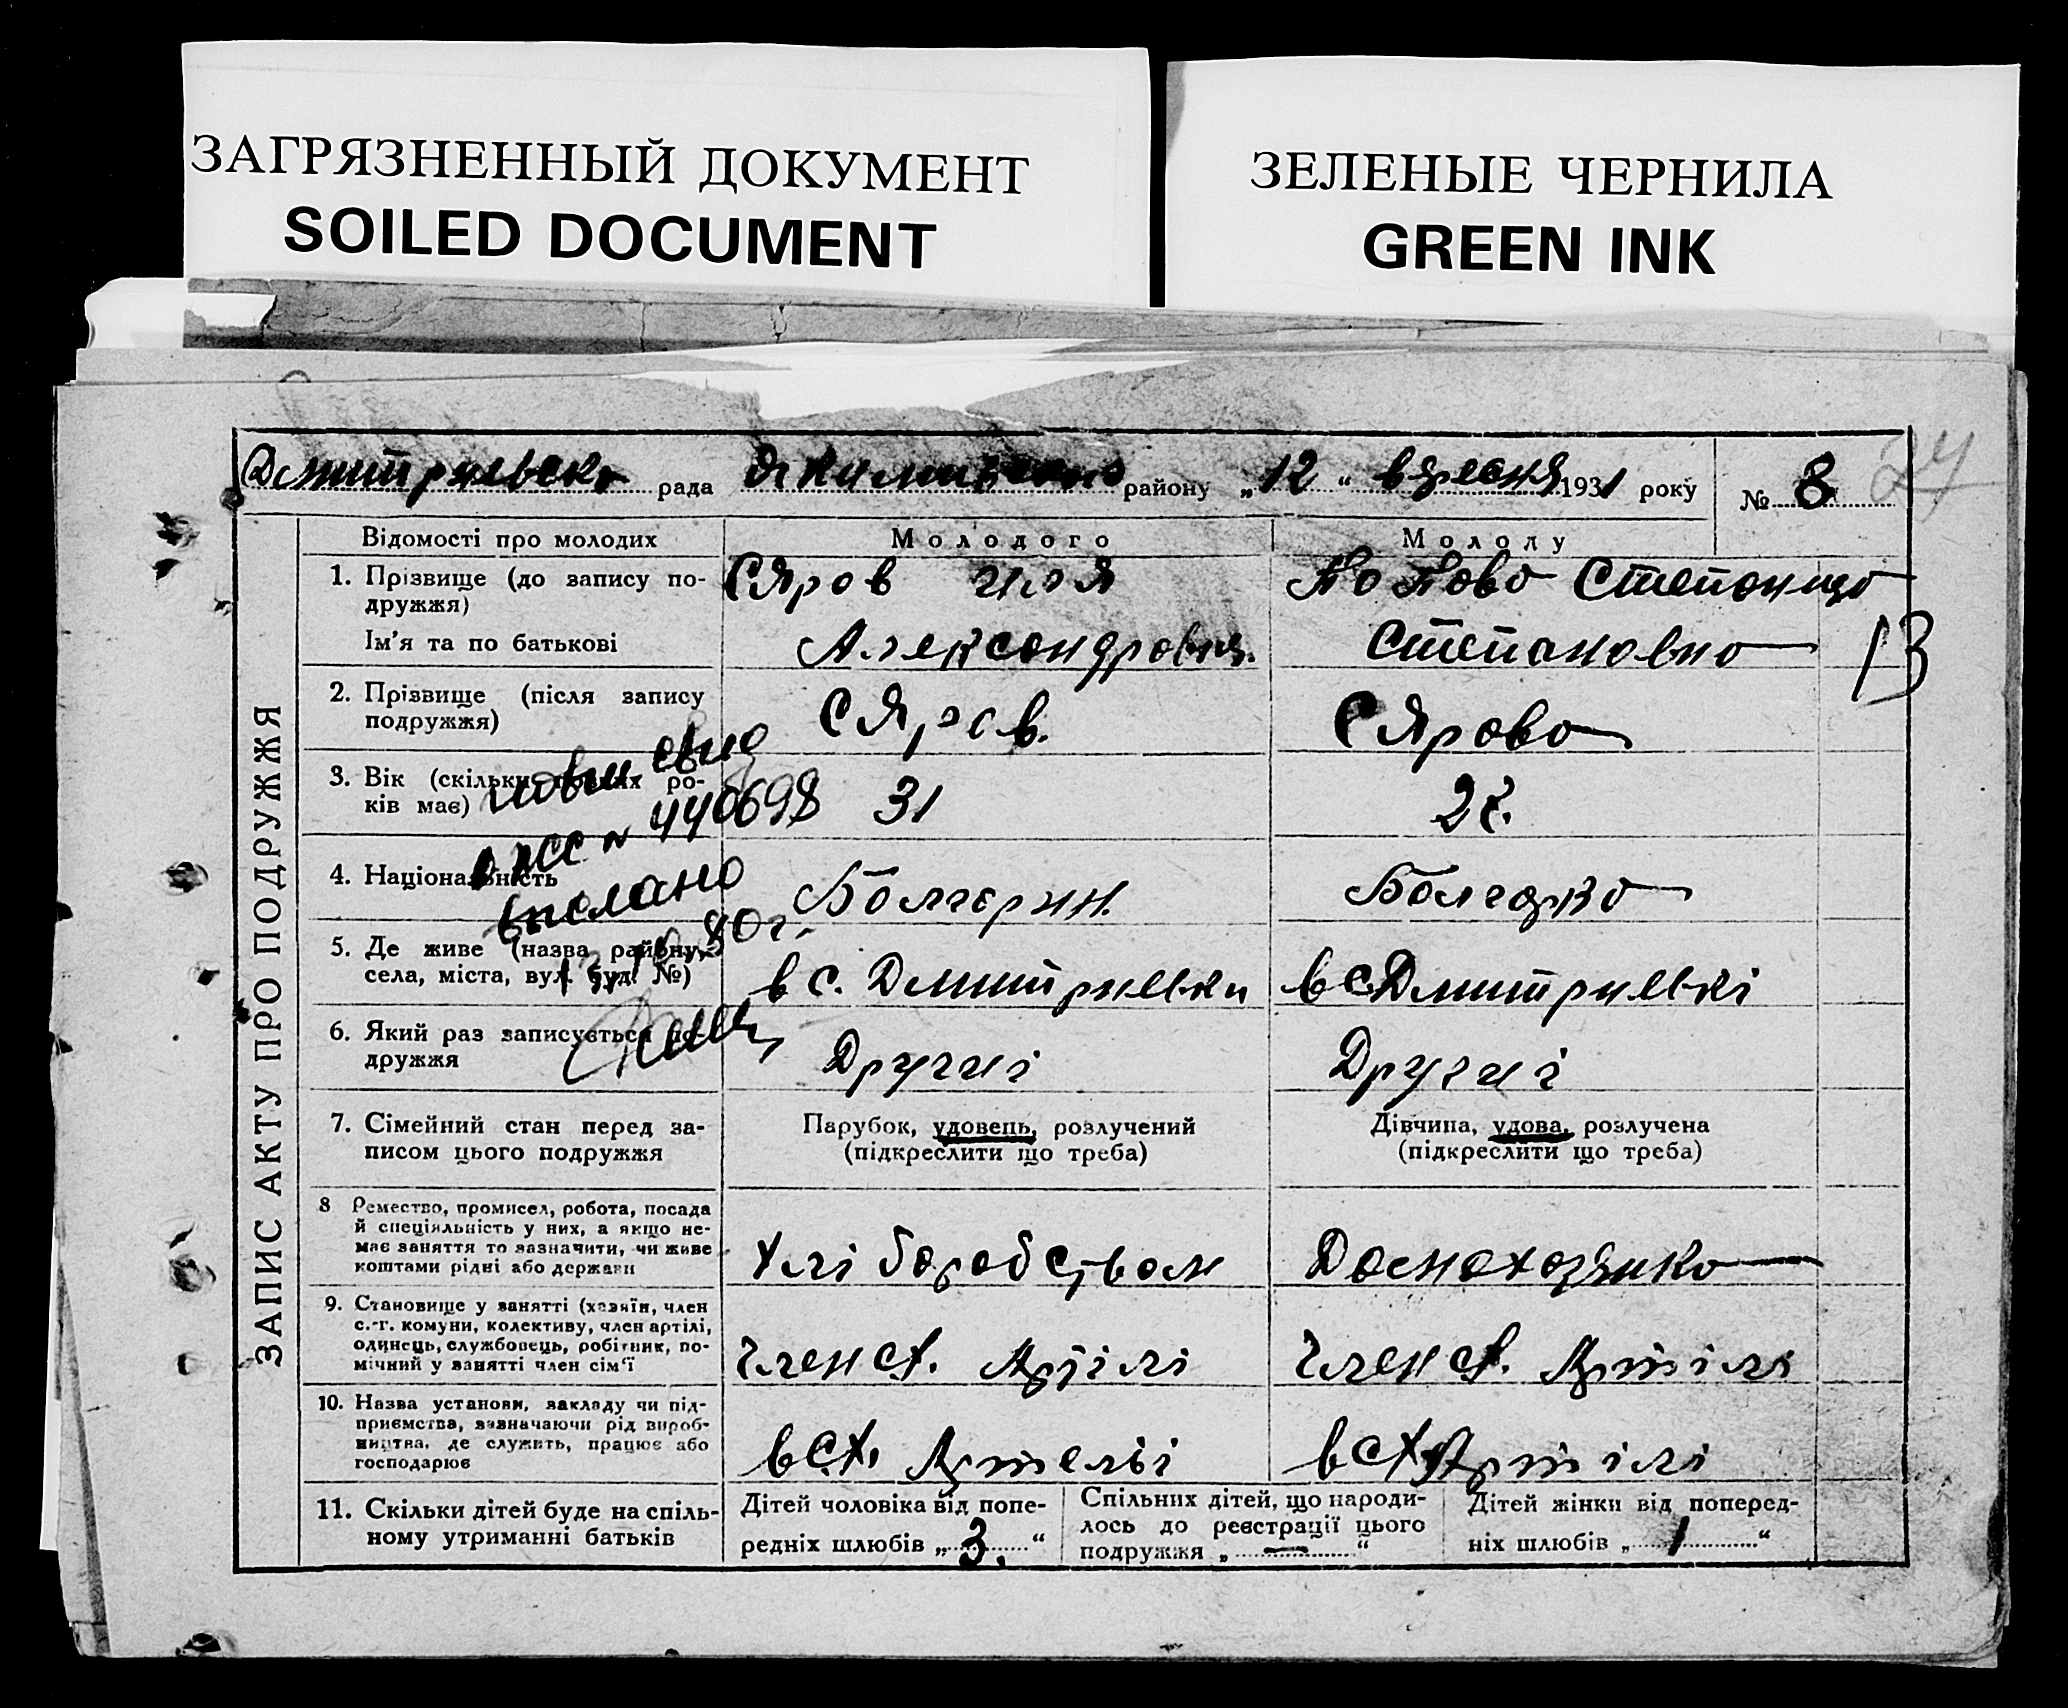 ЗАГРЯЗНЕННЫЙ ДОКУМЕНТ
SOILED DOCUMENT
ЗЕЛЕНЫЕ ЧЕРНИЛА
GREEN INK
24
рада району „12“ вресня 1931 року № 8
ЗАПИС АКТУ ПРО ПОДРУЖЖЯ
Відомості про молодих Молодого Молоду
1. Прізвище (до запису по-
дружжя)
Сяров Иля
Степанида
Ім'я та по батькові
Степановна
13
2. Прізвище (після запису
подружжя)
Сяров.
Сярова
3. Вік (скільки ро-
ків має)
31
27.
4. Національність
Болгарин.
Болгарка
5. Де живе (назва району,
села, міста, вул. буд. №)
в с. Дмитриевки
в с. Дмитриевкі
6. Який раз записується по-
дружжя
Другий
Другий
440698
выслано
7. Сімейний стан перед за-
писом цього подружжя
Парубок, удовець, розлучений
(підкреслити що треба)
Дівчина, удова, розлучена
(підкреслити що треба)
8 Ремество, промисел, робота, посада
й спеціяльність у них, а якщо не-
має заняття то зазначити, чи живе
коштами рідні або держави
Хліборобством
Домохозяйка
9. Становище у занятті (хазяїн, член
с.-г. комуни, колективу, член артілі,
одинець, службовець, робітник, по-
мічний у занятті член сім'ї
член с.х. Артілі
член с.х. Артілі
10. Назва установи, закладу чи під-
приємства, зазначаючи рід вироб-
ництва, де служить, працює або
господарює
в с.х. Артелі
в с.х. Артілі
11. Скільки дітей буде на спіль-
ному утриманні батьків
Дітей чоловіка від попе-
редніх шлюбів „3.“
Спільних дітей, що народи-
лось до реєстрації цього
подружжя „—“
Дітей жінки від поперед-
ніх шлюбів „1“